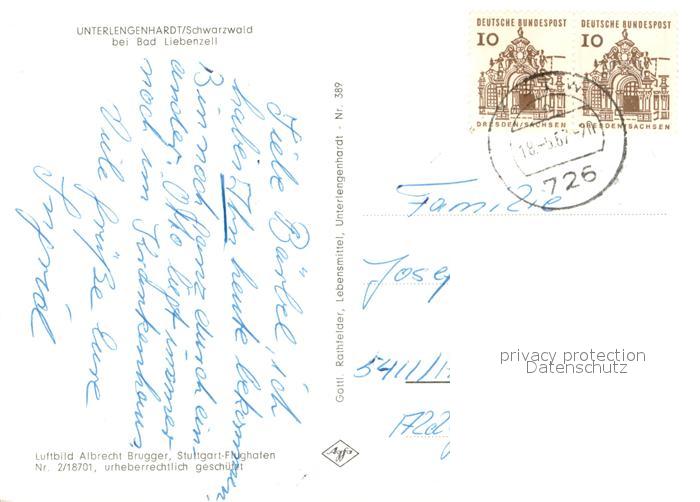 UNTERLENGENHARDT/Schwarzwald
bei Bad Liebenzell
Liebe Bärbel, ich
habe Ihn heute bekommen,
Bin noch ganz durch ein-
ander. Otto liegt immer
noch im Krankenhaus,
Viele Grüße Eure
Ingrid
Luftbild Albrecht Brugger, Stuttgart-Flughafen
Nr. 2/18701, urheberrechtlich geschützt
Gottl. Rathfelder, Lebensmittel, Unterlengenhardt - Nr. 389
Agfa
DEUTSCHE BUNDESPOST
10
DRESDEN/SACHSEN
DEUTSCHE BUNDESPOST
10
DRESDEN/SACHSEN
726
Familie
Josep
5411/
privacy protection
Datenschutz